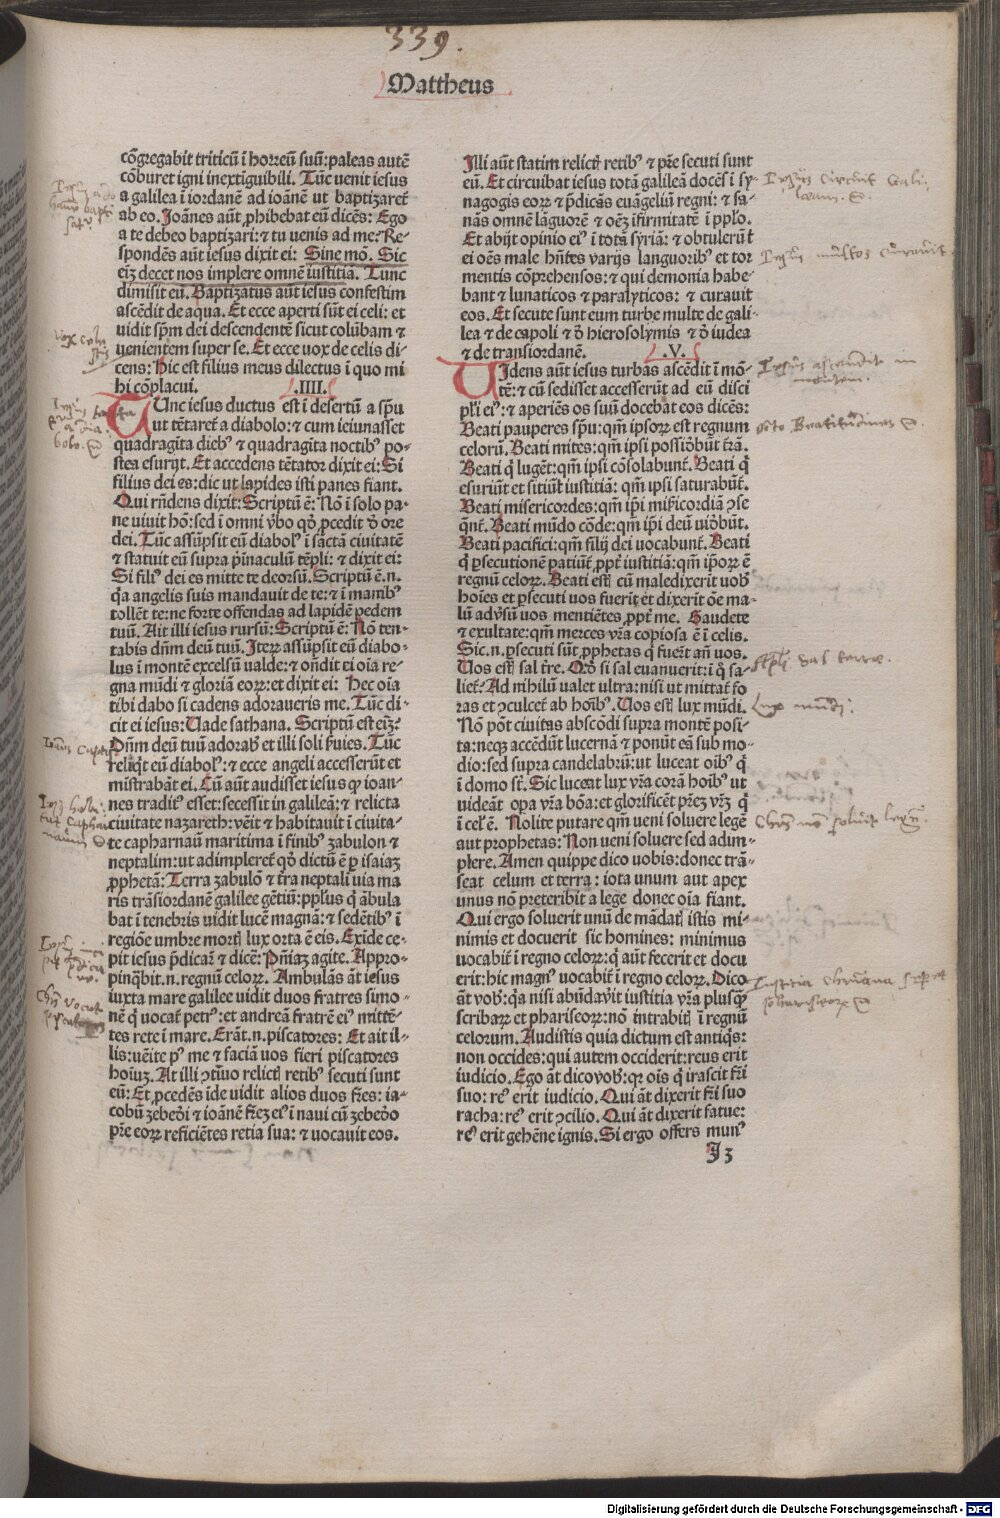 339.
Mattheus
cōgregabit triticū ī horreū suū: paleas autē
cōburet igni inextiguibili. Tūc uenit iesus
a galilea ī iordanē ad ioānē ut baptizaret̄
ab eo. Joānes aūt ꝓhibebat eū dicēs: Ego
a te debeo baptizari: ⁊ tu uenis ad me: Re-
spondēs aūt iesus dixit ei: Sine mō. Sic
eīz decet nos implere omnē iustitiā. Tunc
dimisit eū. Baptizatus aūt iesus confestim
ascēdit de aqua. Et ecce aperti sūt ei celi: et
uidit spm̄ dei descendentē sicut colūbam ⁊
uenientem super se. Et ecce vox de celis di-
cens: Hic est filius meus dilectus ī quo mi
hi cōplacui. .IIII.
TUnc iesus ductus est ī desertū a spū
ut tētaret̄ a diabolo: ⁊ cum ieiunasset
quadragīta dieb⁹ ⁊ quadragīta noctib⁹ po-
stea esurijt. Et accedens tētator dixit ei: Si
filius dei es: dic ut lapides isti panes fiant.
Qui rn̄dens dixit: Scriptū ē: Nō ī solo pa-
ne uiuit hō: sed ī omni v̄bo qd̄ ꝓcedit d̄ ore
dei. Tūc assūpsit eū diabol⁹ ī sāctā ciuitatē
⁊ statuit eū supra pīnaculū tēpli: ⁊ dixit ei:
Si fili⁹ dei es mitte te deorsū. Scriptū ē.n.
qa angelis suis mandauit de te: ⁊ ī manib⁹
tollēt te: ne forte offendas ad lapidē pedem
tuū. Ait illi iesus rursū: Scriptū ē: Nō ten-
tabis dn̄m deū tuū. Iteꝝ assūpsit eū diabo-
lus ī montē excelsū ualde: ⁊ on̄dit ei oīa re-
gna mūdi ⁊ gloriā eoꝝ: et dixit ei: Hec oīa
tibi dabo si cadens adoraueris me. Tūc di-
cit ei iesus: Uade sathana. Scriptū est eīz:
Dn̄m deū tuū adorab̄ et illi soli s̄uies. Tūc
reliqt eū diabol⁹: ⁊ ecce angeli accesserūt et
mīstrabāt ei. Cū aūt audisset iesus ꝙ ioan-
nes tradit⁹ esset: secessit in galileā: ⁊ relicta
ciuitate nazareth: vēit ⁊ habitauit ī ciuita-
te capharnaū maritima ī finib⁹ zabulon ⁊
neptalim: ut adimpleret̄ qd̄ dictū ē ꝑ isaiaz
ꝓphetā: Terra zabulō ⁊ t̄ra neptali uia ma
ris trāsiordanē galilee gētiū: ppl̄us q̄ ābula
bat ī tenebris uidit lucē magnā: ⁊ sedētib⁹ ī
regiōe umbre morti lux orta ē eis. Exīde ce-
pit iesus p̄dicar̄ ⁊ dicē: Pn̄iaz agite. Appro-
pinqbit.n. regnū celoꝝ. Ambulās āt iesus
iuxta mare galilee uidit duos fratres simo-
nē q̄ uocat̄ petr⁹: et andreā fratrē ei⁹ mittē-
tes rete ī mare. Erāt.n. piscatores: Et ait il-
lis: uēite p⁹ me ⁊ faciā uos fieri piscatores
hoīuz. At illi ꝯtīuo relictꝭ retib⁹ secuti sunt
eū: Et ꝓcedēs īde uidit alios duos fr̄es: ia-
cobū zebedi ⁊ ioānē fr̄ez ei⁹ ī naui cū zebedo
pr̄e eoꝝ reficiētes retia sua: ⁊ uocauit eos.
Illi aūt statim relictꝭ retib⁹ ⁊ pr̄e secuti sunt
eū. Et circuibat iesus totā galileā docēs ī sy-
nagogis eoꝝ ⁊ p̄dicās euāgeliū regni: ⁊ sa-
nās omnē lāguorē ⁊ oēz īfirmitatē ī pplo.
Et abijt opinio ei⁹ ī totā syriā: ⁊ obtulerūt
ei oēs male hn̄tes varijs languorib⁹ et tor
mentis cōprehensos: ⁊ qui demonia habe-
bant ⁊ lunaticos ⁊ paralyticos: ⁊ curauit
eos. Et secute sunt eum turbe multe de gali-
lea ⁊ de capoli ⁊ d̄ hierosolymis ⁊ d̄ iudea
⁊ de transiordanē. .V.
UIdens aūt iesus turbas ascēdit ī mō-
tē: ⁊ cū sedisset accesserūt ad eū disci
pl̄i ei⁹: ⁊ aperiēs os suū docebat eos dicēs:
Beati pauperes spū: qm̄ ipsoꝝ est regnum
celorū. Beati mites: qm̄ ipsi possidebūt t̄rā.
Beati q̄ lugēt: qm̄ ipsi cōsolabunt̄. Beati q̄
esuriūt et sitiūt iustitiā: qm̄ ipsi saturabūt̄.
Beati misericordes: qm̄ ipi mīsericordiā ꝯse
qn̄t̄. Beati mūdo cōde: qm̄ ipi deū uidbūt.
Beati pacifici: qm̄ filij dei uocabunt̄. Beati
q̄ ꝑsecutionē patiūt̄ ꝓpt̄ iustitiā: qm̄ ipoꝝ ē
regnū celoꝝ. Beati estꝭ cū maledixerit uob̄
hoīes et ꝑsecuti uos fuerīt et dixerit ōe ma-
lū adv̄sū uos mentiētes ꝓpt̄ me. Gaudete
⁊ exultate: qm̄ merces vr̄a copiosa ē ī celis.
Sic.n. ꝑsecuti sūt ꝓphetas q̄ fuer̄t an̄ uos.
Uos estꝭ sal t̄re. Qd̄ si sal euanuerit: ī q̄ sa-
liet̄: Ad nihilū ualet ultra: nisi ut mittat̄ fo
ras et ꝯculcet̄ ab hoīb⁹. Uos estꝭ lux mūdi.
Nō pōt ciuitas abscōdi supra montē posi-
ta: neqꝫ accēdūt lucernā ⁊ ponūt eā sub mo-
dio: sed supra candelabrū: ut luceat oīb⁹ q̄
ī domo st̄. Sic luceat lux vr̄a corā hoīb⁹ ut
uideāt opa vr̄a bōa: et glorificēt pr̄ez vr̄z q̄
ī cel̄ ē. Nolite putare qm̄ ueni soluere legē
aut prophetas: Non ueni soluere sed adim-
plere. Amen quippe dico uobis: donec trā-
seat celum et terra: iota unum aut apex
unus nō preteribit a lege donec oīa fiant.
Qui ergo soluerit unū de mādatꝭ istis mi-
nimis et docuerit sic homines: minimus
uocabit̄ ī regno celoꝝ: q̄ aūt fecerit et docu
erit: hic magn⁹ uocabit̄ ī regno celoꝝ. Dico
āt vob̄: qa nisi abūdauit iustitia vr̄a plusꝙ
scribaꝝ et phariseoꝝ: nō intrabitꝭ ī regnū
celorum. Audistis quia dictum est antiqs:
non occides: qui autem occiderit: reus erit
iudicio. Ego āt dico vob̄: qꝛ oīs q̄ irascit̄ fr̄i
suo: re⁹ erit iudicio. Qui āt dixerit fr̄i suo
racha: re⁹ erit ꝯcilio. Qui āt dixerit fatue:
re⁹ erit gehēne ignis. Si ergo offers mun⁹
J 3
Lux mūdi.
Digitalisierung gefördert durch die Deutsche Forschungsgemeinschaft - DFG